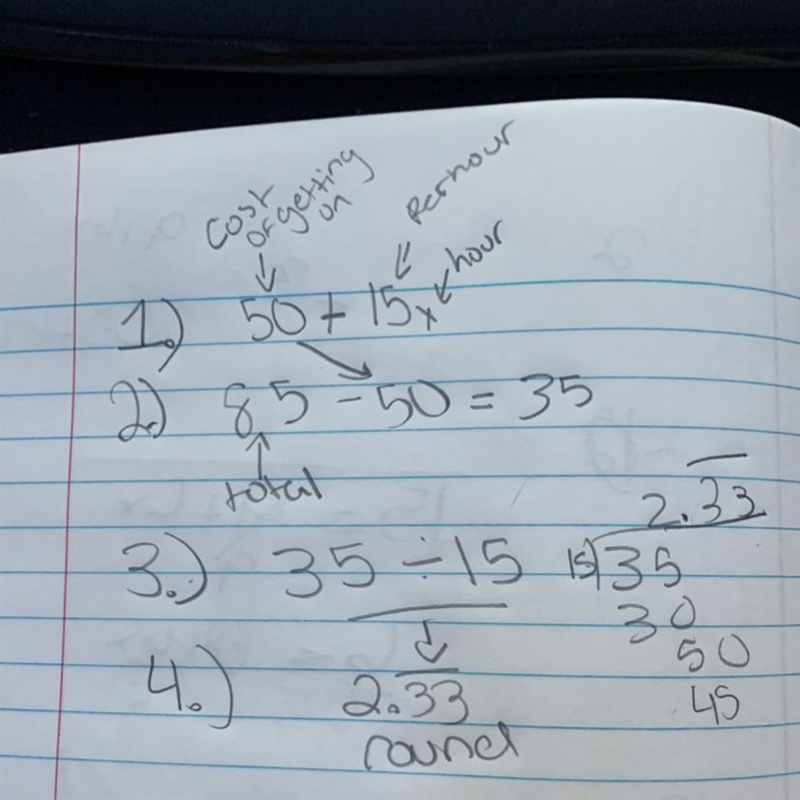 cost
of getting
on
per hour
hour
1.) 50 + 15x
2.) 85 - 50 = 35
total
2.33
3.) 35 ÷ 15 15)35
30
50
4.) 2.33 45
round